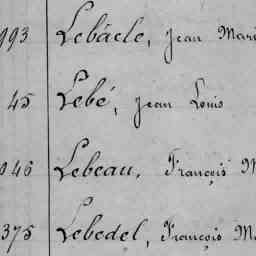 993 Lebâcle, Jean Mari
45 Lebé, Jean Louis
046 Lebeau, François M
375 Lebedel, François Ma